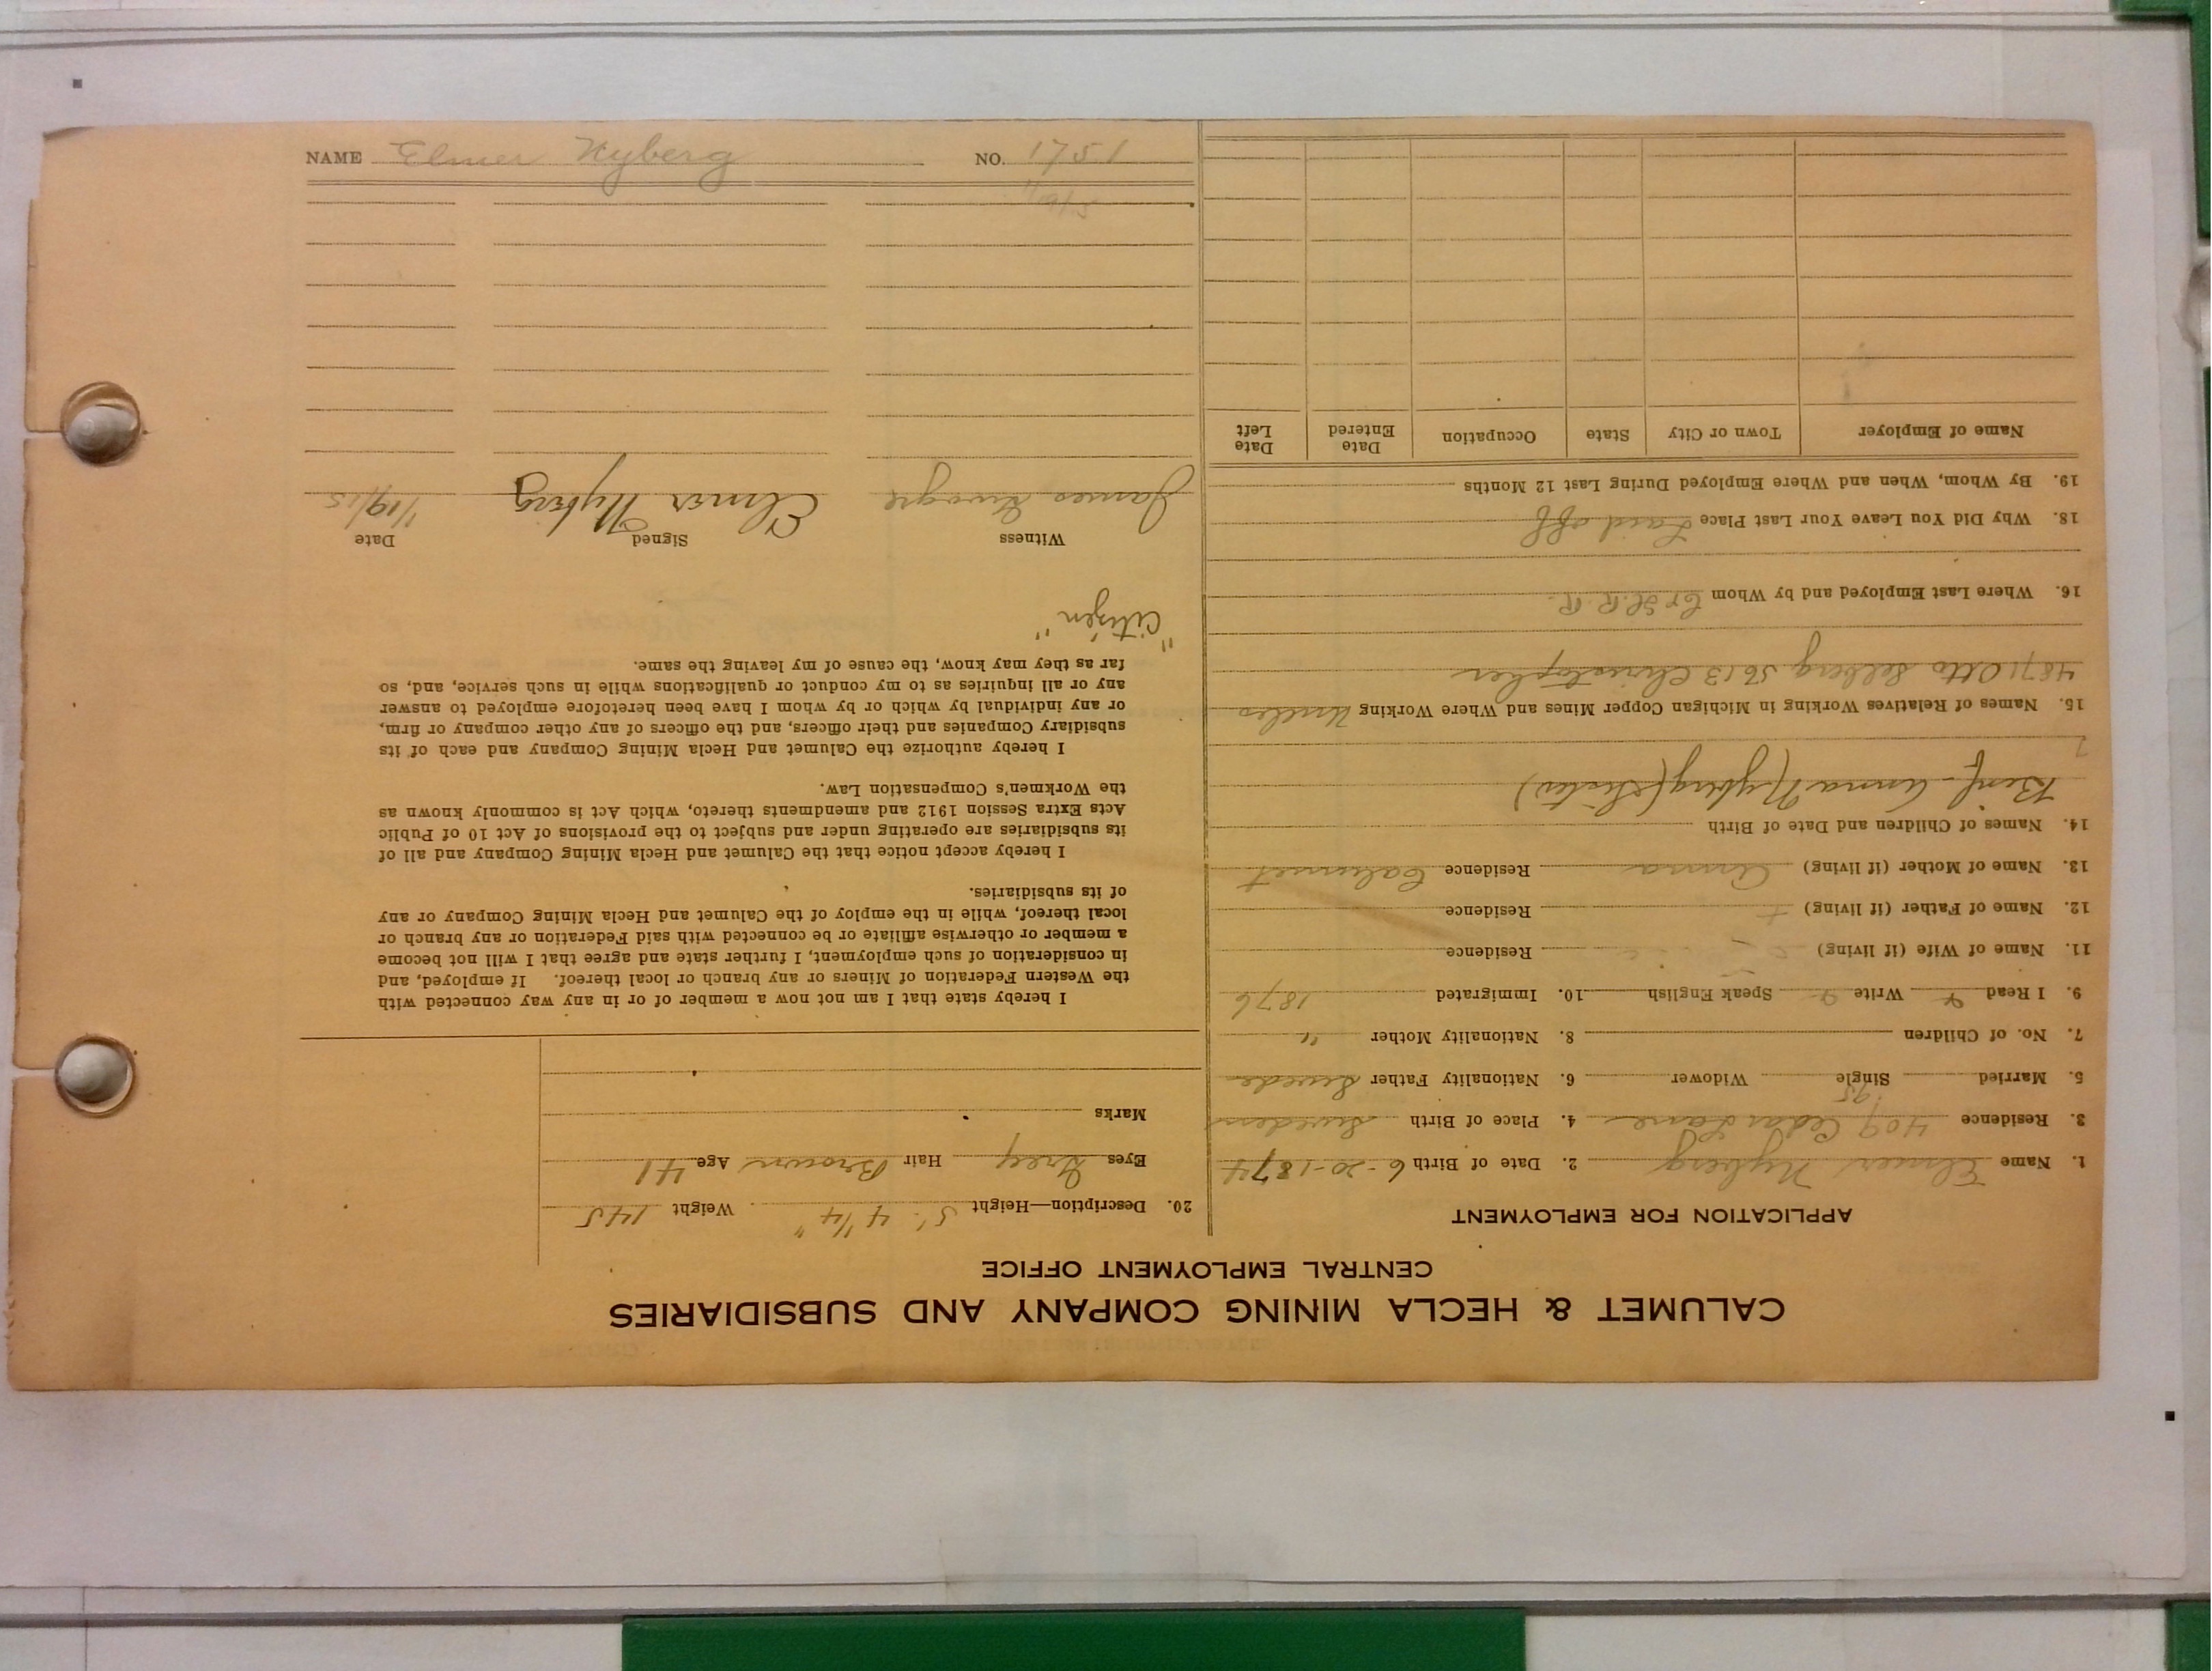 CALUMET & HECLA MINING COMPANY AND SUBSIDIARIES
CENTRAL EMPLOYMENT OFFICE
APPLICATION FOR EMPLOYMENT
1. Name Elmer Nyberg 2. Date of Birth 6-20-1874
3. Residence 409 Cedar Lane 4. Place of Birth Sweden
5. Married Single Widower 6. Nationality Father Swede
7. No. of Children 8. Nationality Mother "
9. I Read Write Speak English 10. Immigrated 1876
11. Name of Wife (if living) Residence
12. Name of Father (if living) Residence
13. Name of Mother (if living) Anna Residence Calumet
14. Names of Children and Date of Birth
Benf- Anna Nyberg (Sister)
15. Names of Relatives Working in Michigan Copper Mines and Where Working Uncles
4871 Otto Selberg 5613 Christopher
16. Where Last Employed and by Whom R.R.
18. Why Did You Leave Your Last Place Laid off
19. By Whom, When and Where Employed During Last 12 Months
Name of Employer Town or City State Occupation Date Entered Date Left
20. Description—Height 5'. 4 1/4" Weight 145
Eyes Grey Hair Brown Age 41
Marks
I hereby state that I am not now a member of or in any way connected with
the Western Federation of Miners or any branch or local thereof. If employed, and
in consideration of such employment, I further state and agree that I will not become
a member or otherwise affiliate or be connected with said Federation or any branch or
local thereof, while in the employ of the Calumet and Hecla Mining Company or any
of its subsidiaries.
I hereby accept notice that the Calumet and Hecla Mining Company and all of
its subsidiaries are operating under and subject to the provisions of Act 10 of Public
Acts Extra Session 1912 and amendments thereto, which Act is commonly known as
the Workmen's Compensation Law.
I hereby authorize the Calumet and Hecla Mining Company and each of its
subsidiary Companies and their officers, and the officers of any other company or firm,
or any individual by which or by whom I have been heretofore employed to answer
any or all inquiries as to my conduct or qualifications while in such service, and, so
far as they may know, the cause of my leaving the same.
"Citizen"
Witness Signed Date
James Elmer Nyberg 1/19/15
NAME Elmer Nyberg NO. 1751